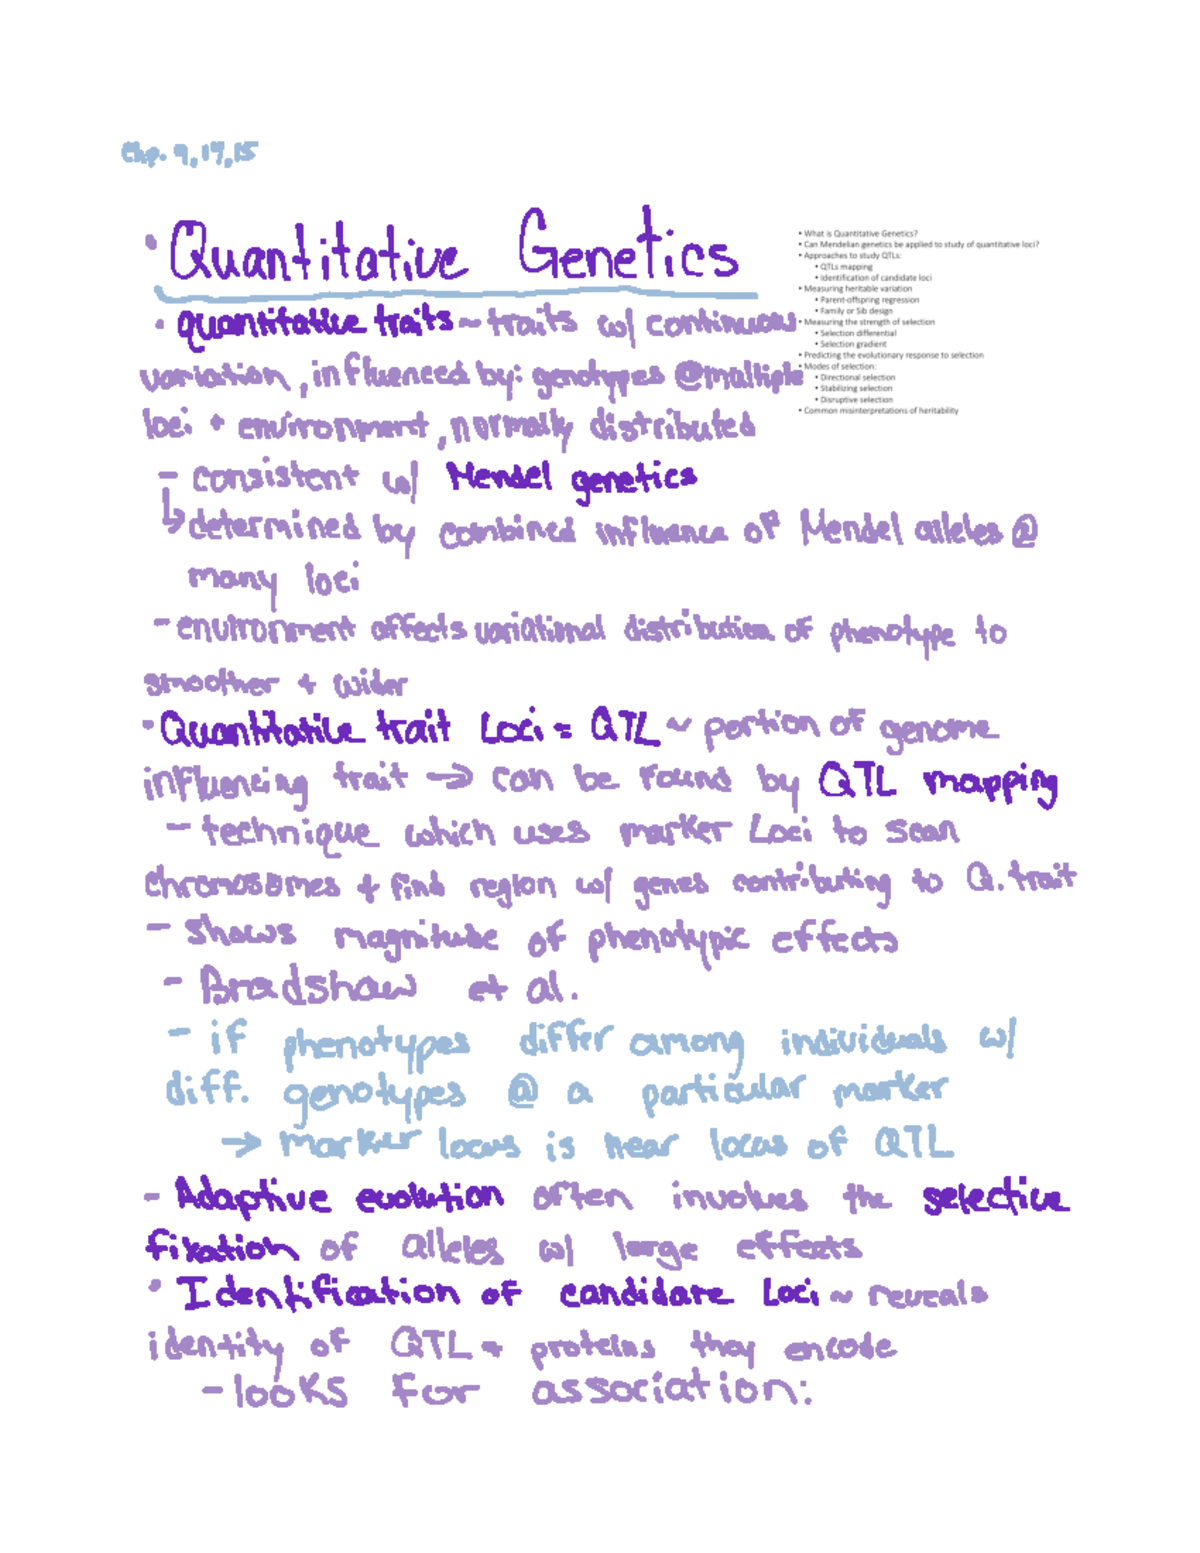 Chp. 9, 14, 15
• Quantitative Genetics
• What is Quantitative Genetics?
• Can Mendelian genetics be applied to study of quantitative loci?
• Approaches to study QTLs:
• QTLs mapping
• Identification of candidate loci
• Measuring heritable variation
• Parent-offspring regression
• Family or Sib design
• Measuring the strength of selection
• Selection differential
• Selection gradient
• Predicting the evolutionary response to selection
• Modes of selection:
• Directional selection
• Stabilizing selection
• Disruptive selection
• Common misinterpretations of heritability
• quantitative traits ~ traits w/ continuous
variation, influenced by: genotypes @ multiple
loci + environment, normally distributed
- consistent w/ Mendel genetics
↳ determined by combined influence of Mendel alleles @
many loci
- environment affects variational distribution of phenotype to
smoother + wider
• Quantitative trait Loci = QTL ~ portion of genome
influencing trait → can be found by QTL mapping
- technique which uses marker Loci to scan
chromosomes + find region w/ genes contributing to Q. trait
- shows magnitude of phenotypic effects
- Bradshaw et al.
- if phenotypes differ among individuals w/
diff. genotypes @ a particular marker
→ marker locus is near locus of QTL
- Adaptive evolution often involves the selective
fixation of alleles w/ large effects
• Identification of candidate Loci ~ reveals
identity of QTL + proteins they encode
- looks for association: